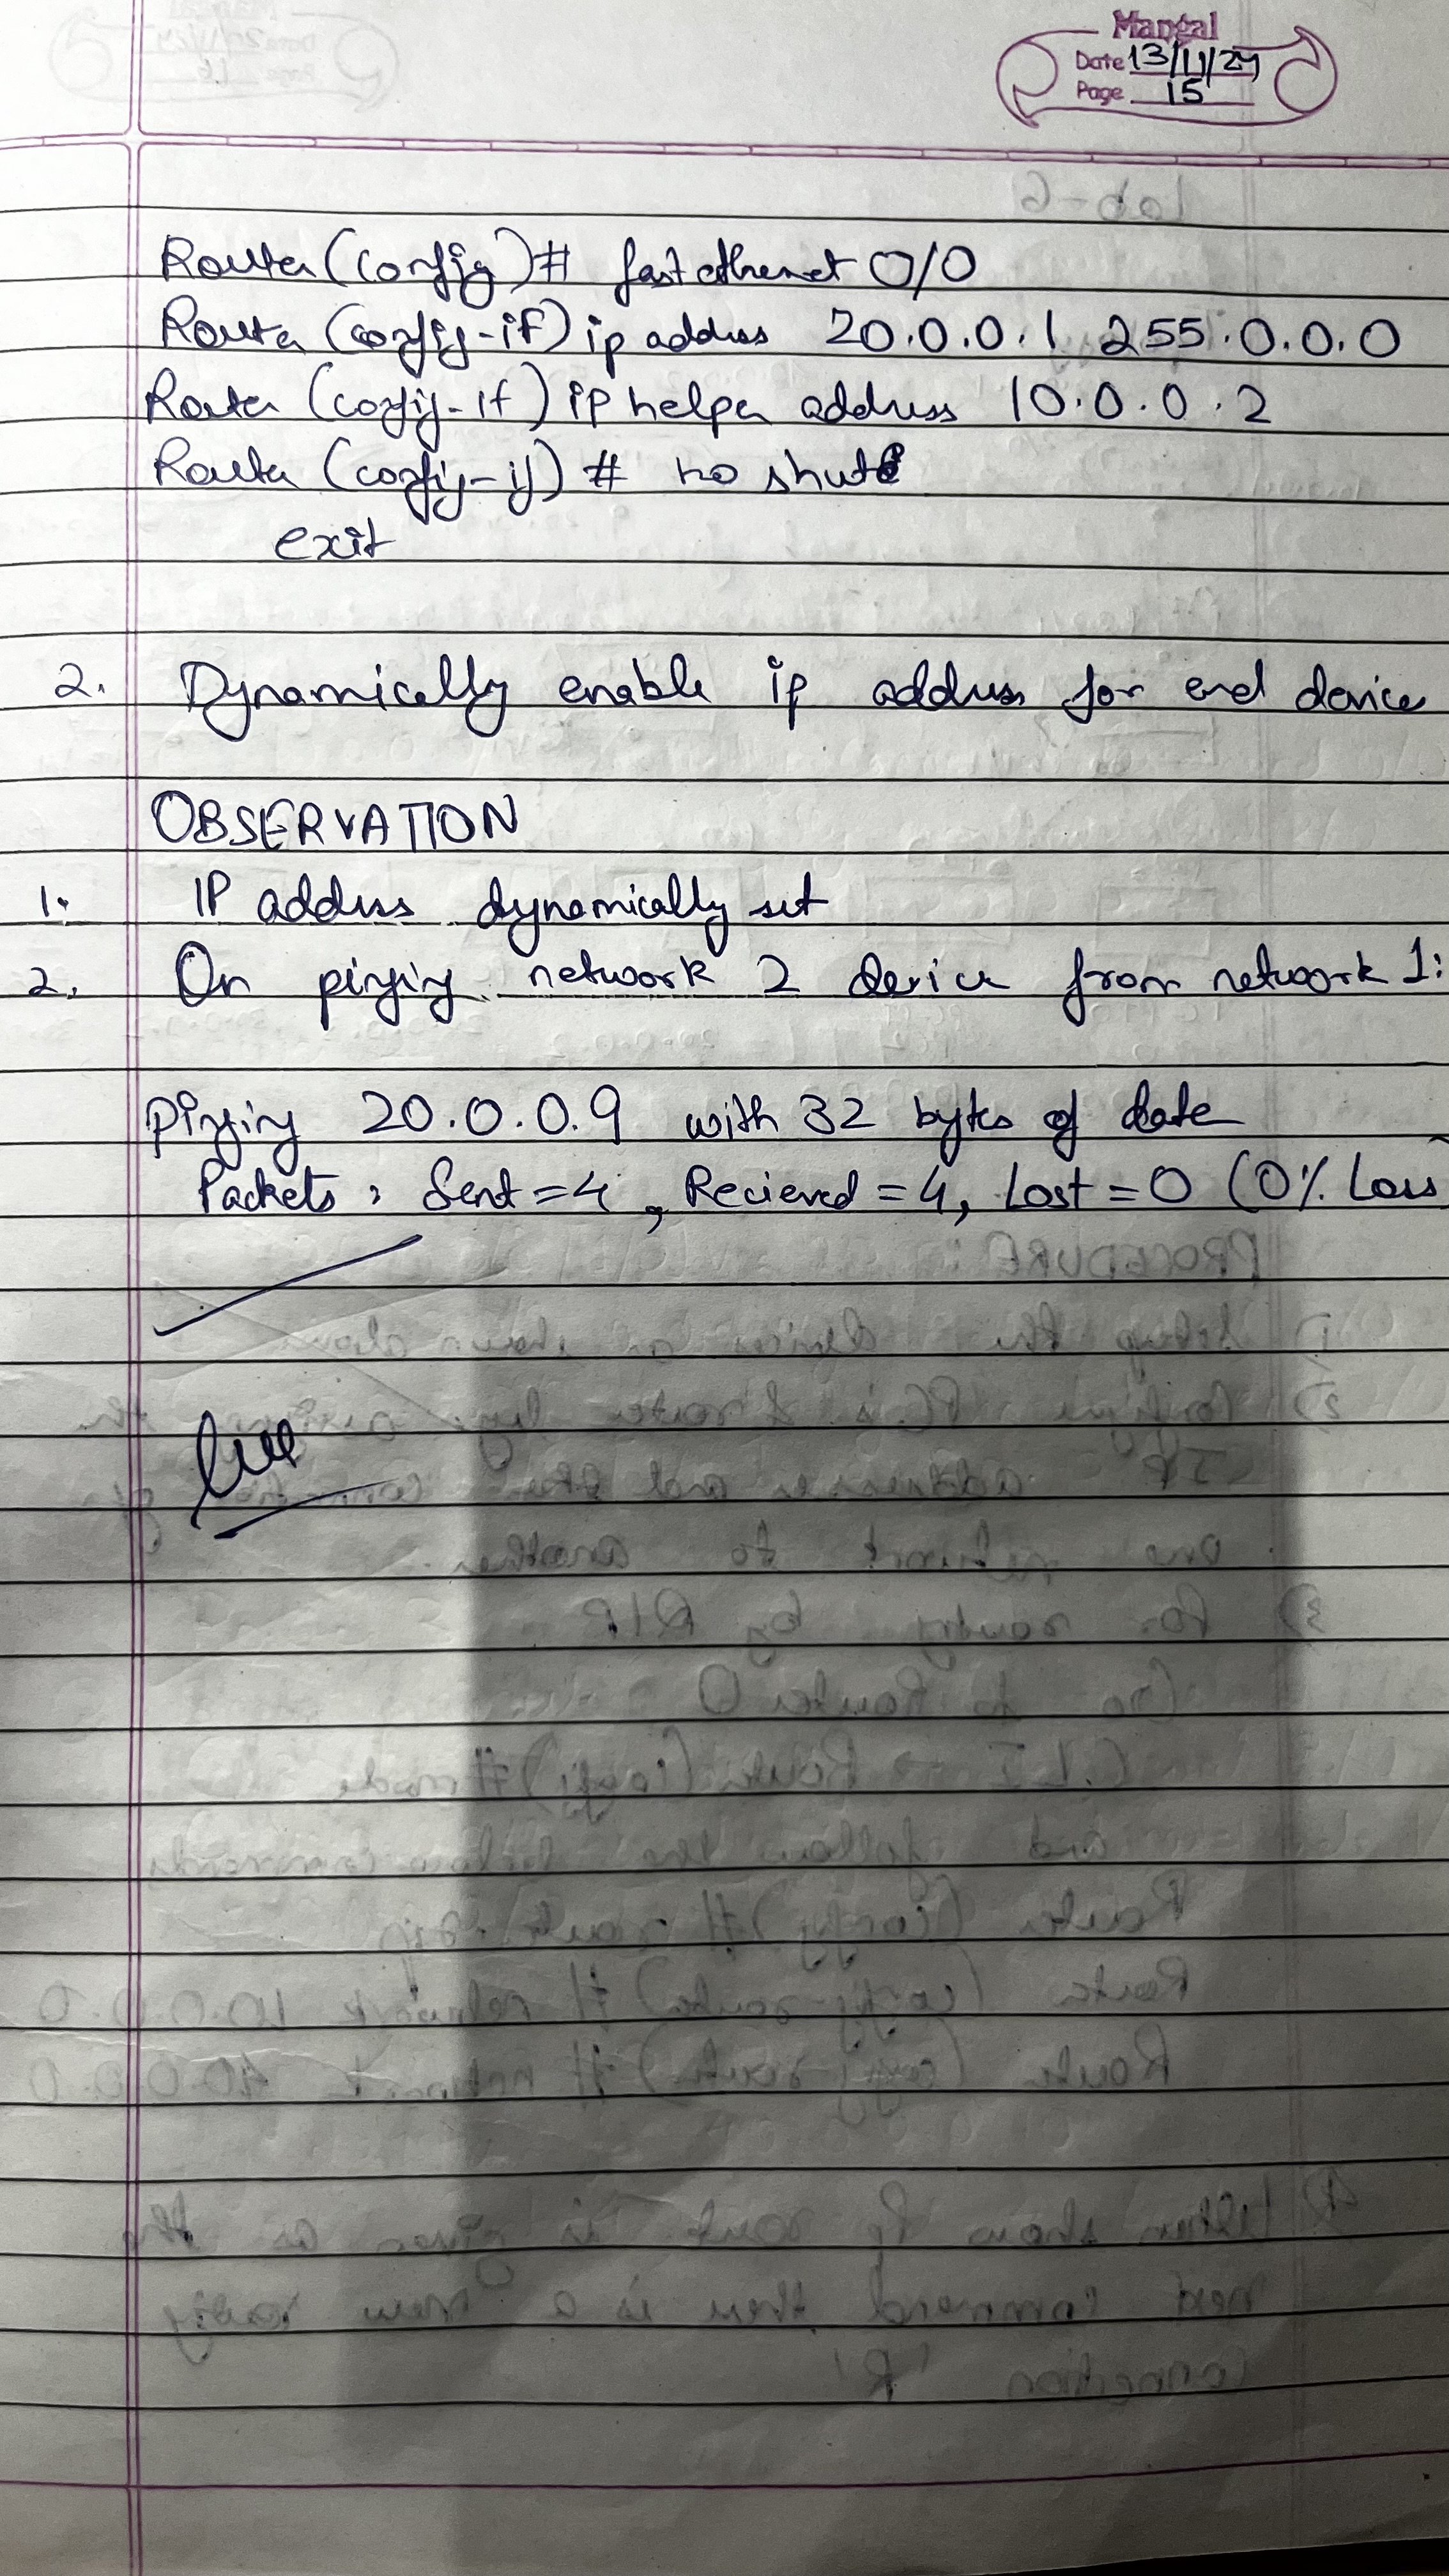 Mangal
Date 13/11/24
Page 15
Router (config)# fastethernet 0/0
Router (config-if) ip address 20.0.0.1 255.0.0.0
Router (config-if) ip helper address 10.0.0.2
Router (config-if) # no shut
exit
2. Dynamically enable ip address for end device
OBSERVATION
1. IP address dynamically set
2. On pinging network 2 device from network 1:
Pinging 20.0.0.9 with 32 bytes of data
Packets: Sent=4, Recieved=4, Lost=0 (0% Loss